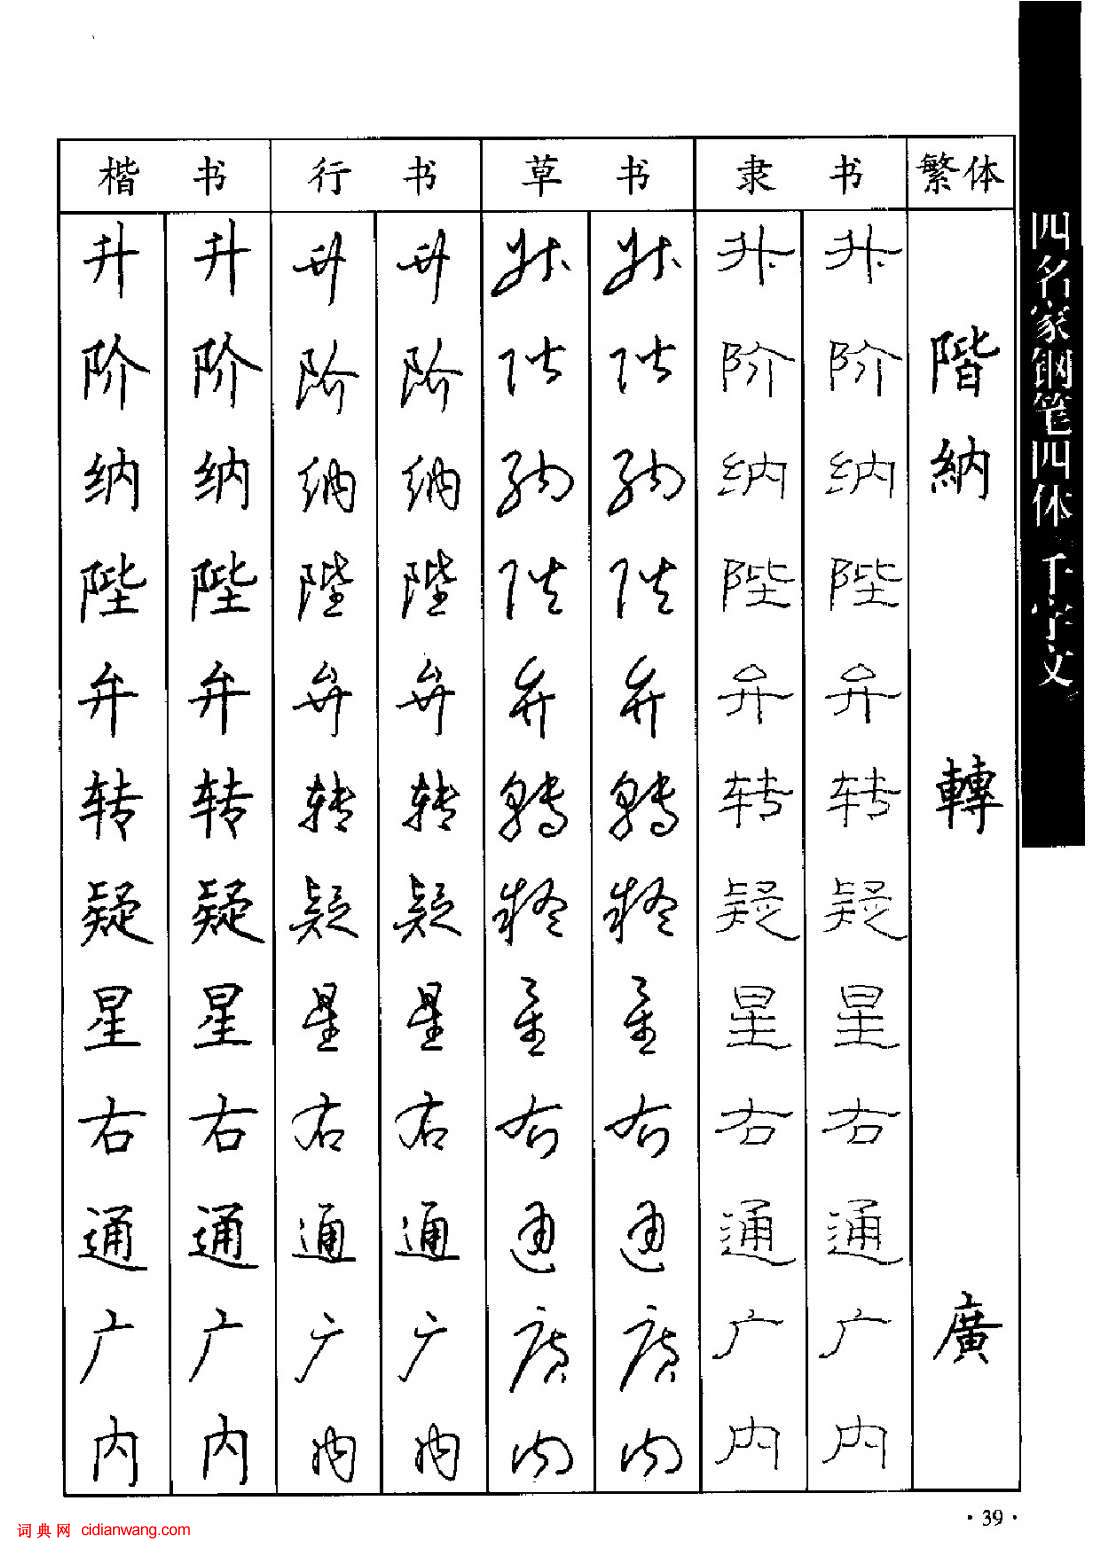 楷书 行书 草书 隶书 繁体
升 升 升 升 升 升 升 升
阶 阶 阶 阶 阶 阶 阶 阶 階
纳 纳 纳 纳 纳 纳 纳 纳 納
陛 陛 陛 陛 陛 陛 陛 陛
弁 弁 弁 弁 弁 弁 弁 弁
转 转 转 转 轉 轉 转 转 轉
疑 疑 疑 疑 疑 疑 疑 疑
星 星 星 星 星 星 星 星
右 右 右 右 右 右 右 右
通 通 通 通 通 通 通 通
广 广 广 广 廣 廣 广 广 廣
内 内 内 内 内 内 内 内
四名家钢笔四体 千字文
·39·
词典网 cidianwang.com